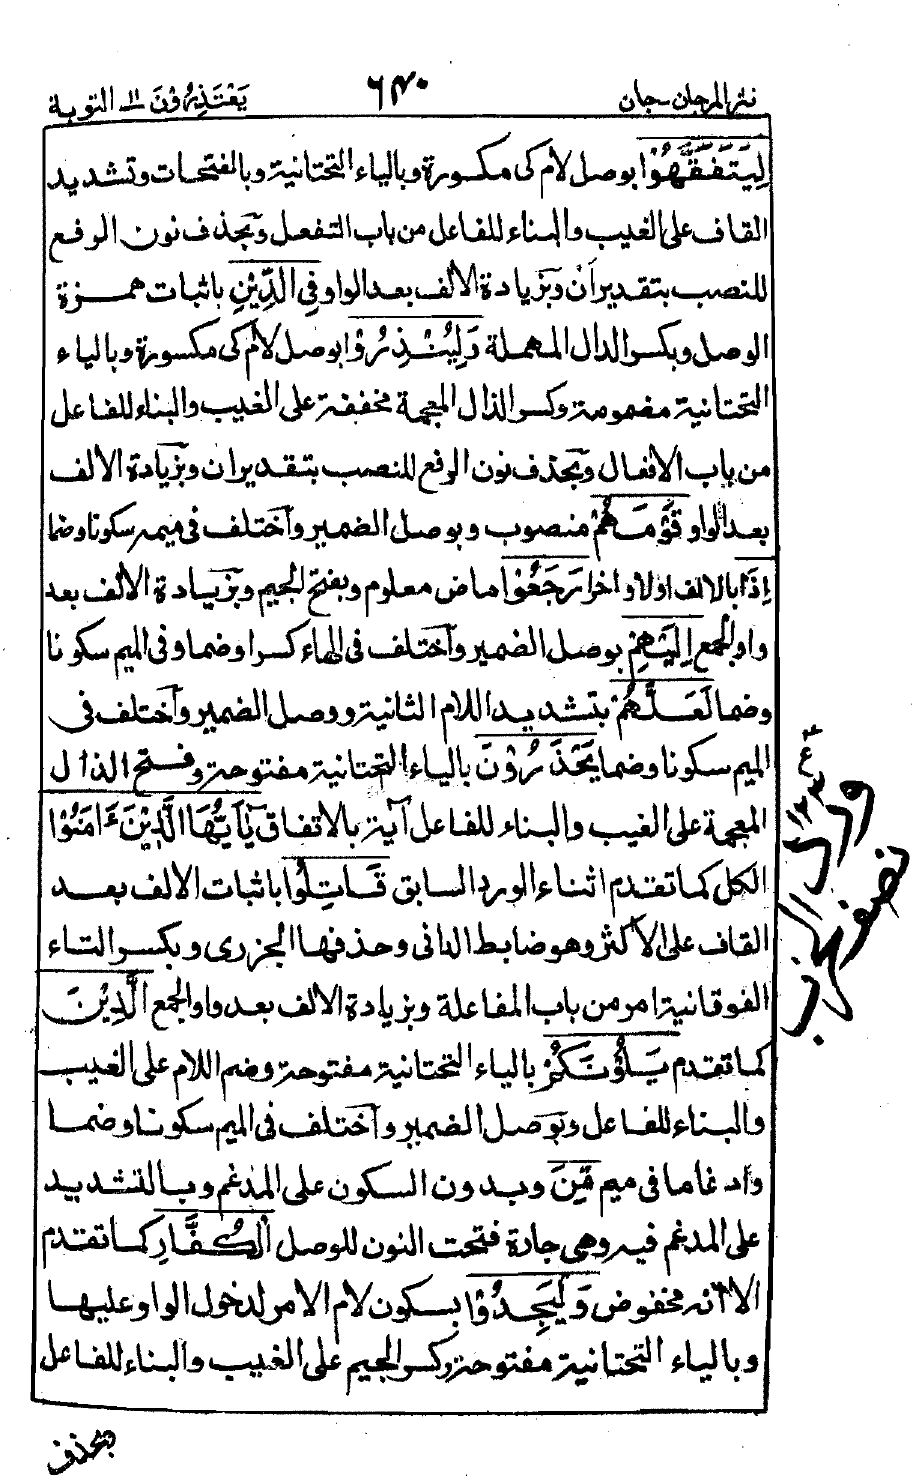 نثر المرجان - جان ٦٤٠ يَعْتَذِرُوْنَ ١١ التوبة
لِيَتَفَقَّهُوْا بوصل لام كى مكسورة وبالياء التحتانية وبالفتحات وتشديد
القاف على الغيب والبناء للفاعل من باب التفعل وبحذف نون الرفع
للنصب بتقدير أن وبزيادة الألف بعد الواو فِي الدِّيْنِ باثبات همزة
الوصل وبكسر الدال المهملة وَلِيُنْذِرُوْا بوصل لام كى مكسورة وبالياء
التحتانية مضمومة وكسر الذال المعجمة مخففة على الغيب والبناء للفاعل
من باب الافعال وبحذف نون الرفع للنصب بتقدير ان وبزيادة الالف
بعد الواو قَوْمَهُمْ منصوب وبوصل الضمير واختلف فى ميمه سكونا وضما
اِذَا بالالف اولا واخرا رَجَعُوْا ماض معلوم وبفتح الجيم وبزيادة الألف بعد
واو الجمع اِلَيْهِمْ بوصل الضمير واختلف فى الهاء كسرا وضما وفى الميم سكونا
وضما لَعَلَّهُمْ بتشديد اللام الثانية ووصل الضمير واختلف فى
الميم سكونا وضما يَحْذَرُوْنَ بالياء التحتانية مفتوحة وفتح الذال
المعجمة على الغيب والبناء للفاعل آية بالاتفاق يٰٓاَيُّهَا الَّذِيْنَ ءَامَنُوْا
الكل كما تقدم اثناء الورد السابق قَاتِلُوْا باثبات الالف بعد
القاف على الأكثر وهو ضابط الدانى وحذفها الجزرى وبكسر التاء
الفوقانية امر من باب المفاعلة وبزيادة الالف بعد واو الجمع الَّذِيْنَ
كما تقدم يَلُوْنَكُمْ بالياء التحتانية مفتوحة وضم اللام على الغيب
والبناء للفاعل وبوصل الضمير واختلف فى الميم سكونا وضما
وادغاما فى ميم مِّنَ وبدون السكون على المدغم وبالتشديد
على المدغم فيه وهى جارة فتحت النون للوصل الْكُفَّارِ كما تقدم
الا انه مخفوض وَلْيَجِدُوْا بسكون لام الامر لدخول الواو عليها
وبالياء التحتانية مفتوحة وكسر الجيم على الغيب والبناء للفاعل
بحذف
نصف الحزب